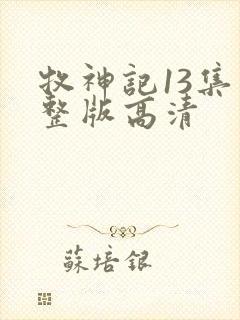 牧神記13集
整版高清
蘇培銀